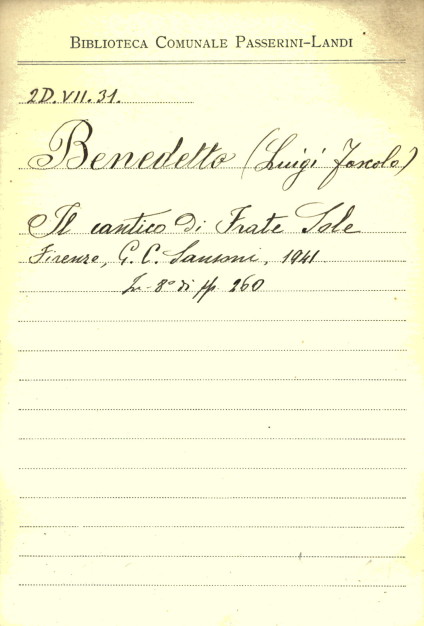 BIBLIOTECA COMUNALE PASSERINI-LANDI
2D.VII.31.
Benedetto (Luigi Foscolo)
Il cantico di Frate Sole
Firenze, G. C. Sansoni, 1941
In-8° di pp. 260